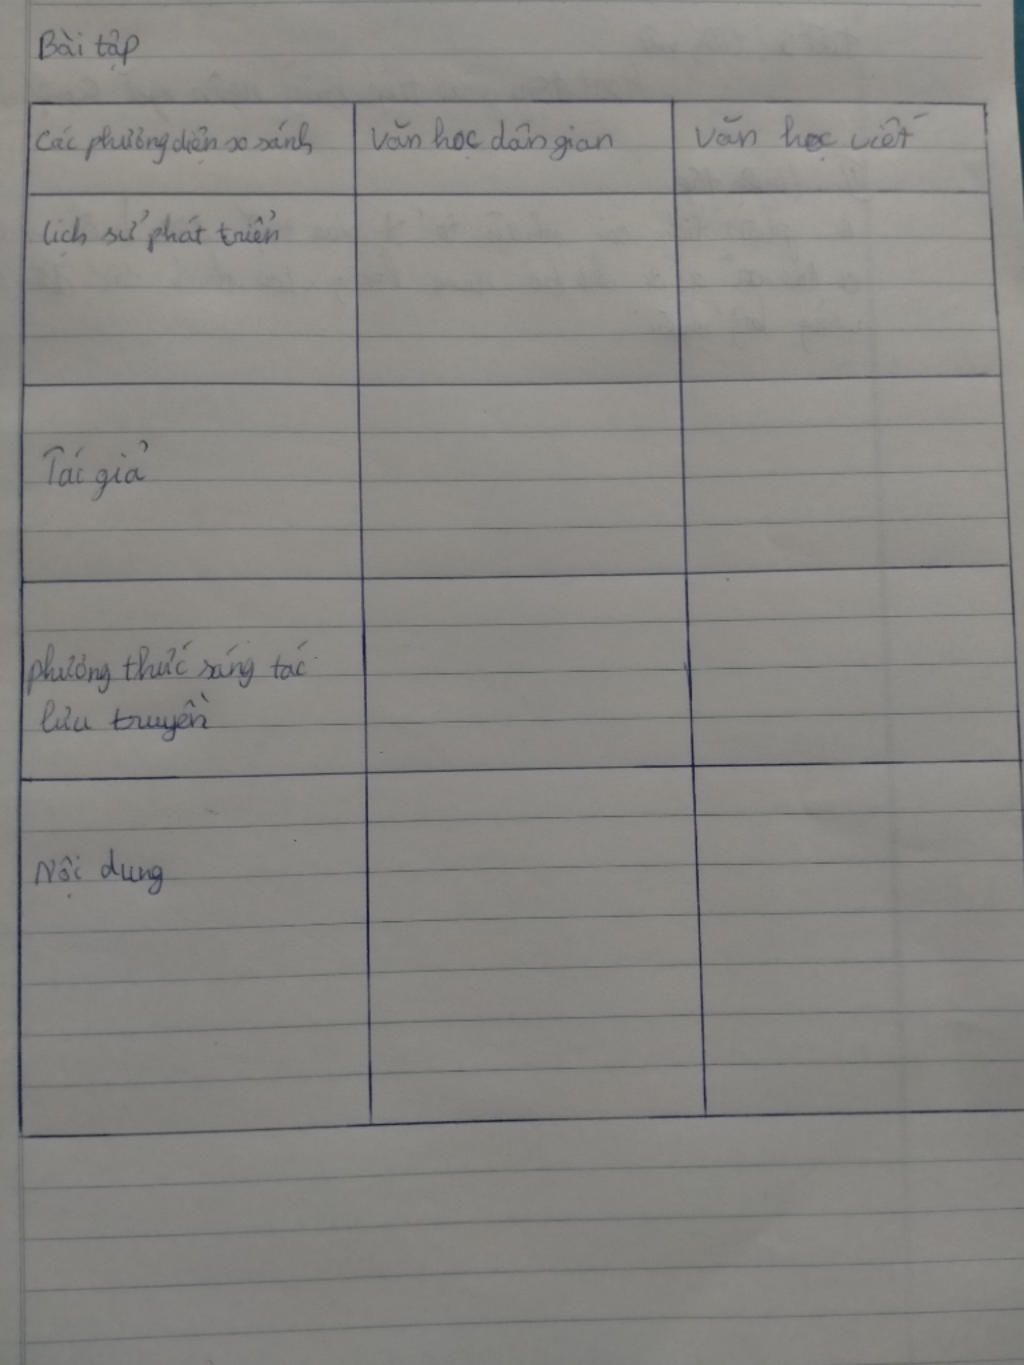 Bài tập
Các phương diện so sánh
Văn học dân gian
Văn học viết
lịch sử phát triển
Tác giả
phương thức sáng tác
lưu truyền
Nội dung